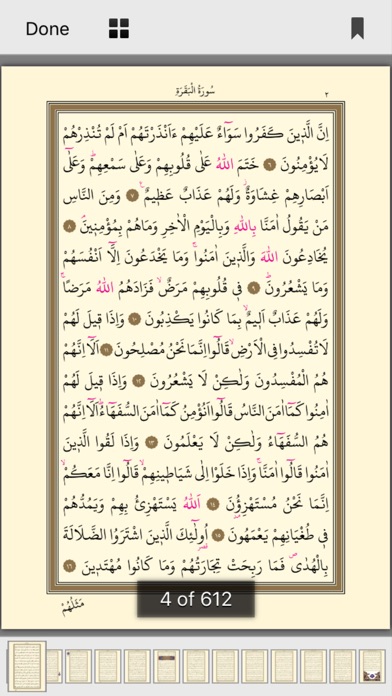 Done
سُورَةُ الْبَقَرَةِ ٢
اِنَّ الَّذ۪ينَ كَفَرُوا سَوَٓاءٌ عَلَيْهِمْ ءَاَنْذَرْتَهُمْ اَمْ لَمْ تُنْذِرْهُمْ
لَا يُؤْمِنُونَ ٦ خَتَمَ اللّٰهُ عَلٰى قُلُوبِهِمْ وَعَلٰى سَمْعِهِمْۜ وَعَلٰٓى
اَبْصَارِهِمْ غِشَاوَةٌۘ وَلَهُمْ عَذَابٌ عَظ۪يمٌ۟ ٧ وَمِنَ النَّاسِ
مَنْ يَقُولُ اٰمَنَّا بِاللّٰهِ وَبِالْيَوْمِ الْاٰخِرِ وَمَاهُمْ بِمُؤْمِن۪ينَۘ ٨
يُخَادِعُونَ اللّٰهَ وَالَّذ۪ينَ اٰمَنُواۚ وَمَا يَخْدَعُونَ اِلَّٓا اَنْفُسَهُمْ
وَمَا يَشْعُرُونَۜ ٩ ف۪ي قُلُوبِهِمْ مَرَضٌۙ فَزَادَهُمُ اللّٰهُ مَرَضًاۚ
وَلَهُمْ عَذَابٌ اَل۪يمٌۙ بِمَا كَانُوا يَكْذِبُونَ ١٠ وَاِذَا ق۪يلَ لَهُمْ
لَا تُفْسِدُوا فِي الْاَرْضِۙ قَالُٓوا اِنَّمَا نَحْنُ مُصْلِحُونَ ١١ اَلَٓا اِنَّهُمْ
هُمُ الْمُفْسِدُونَ وَلٰكِنْ لَا يَشْعُرُونَ ١٢ وَاِذَا ق۪يلَ لَهُمْ
اٰمِنُوا كَمَٓا اٰمَنَ النَّاسُ قَالُٓوا اَنُؤْمِنُ كَمَٓا اٰمَنَ السُّفَهَٓاءُۜ اَلَٓا اِنَّهُمْ
هُمُ السُّفَهَٓاءُ وَلٰكِنْ لَا يَعْلَمُونَ ١٣ وَاِذَا لَقُوا الَّذ۪ينَ
اٰمَنُوا قَالُٓوا اٰمَنَّاۚ وَاِذَا خَلَوْا اِلٰى شَيَاط۪ينِهِمْۙ قَالُٓوا اِنَّا مَعَكُمْۙ
اِنَّمَا نَحْنُ مُسْتَهْزِؤُ۫نَ ١٤ اَللّٰهُ يَسْتَهْزِئُ بِهِمْ وَيَمُدُّهُمْ
ف۪ي طُغْيَانِهِمْ يَعْمَهُونَ ١٥ اُو۬لٰٓئِكَ الَّذ۪ينَ اشْتَرَوُا الضَّلَالَةَ
بِالْهُدٰىۖ فَمَا رَبِحَتْ تِجَارَتُهُمْ وَمَا كَانُوا مُهْتَد۪ينَ ١٦
مَثَلُهُمْ
4 of 612